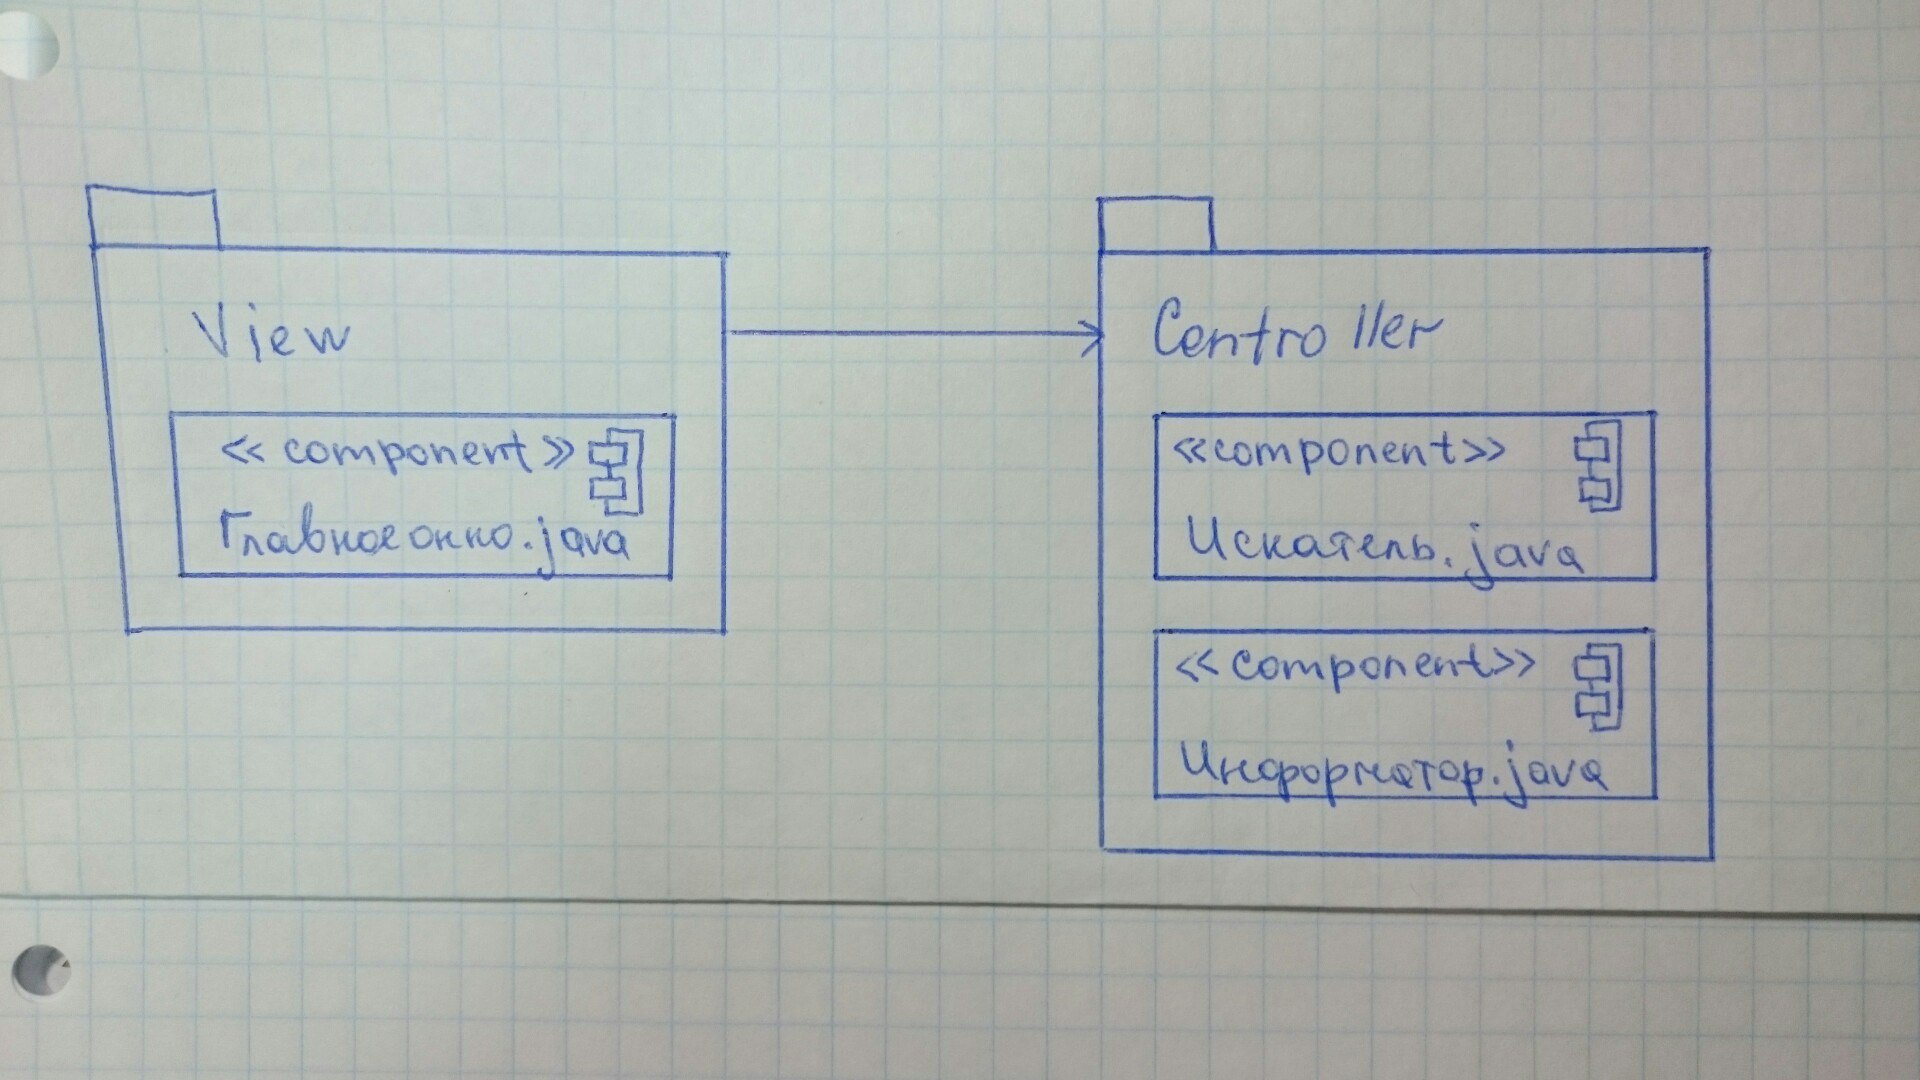 View
<< component >>
Главное окно.java
Controller
<<component>>
Искатель.java
<<component>>
Информатор.java